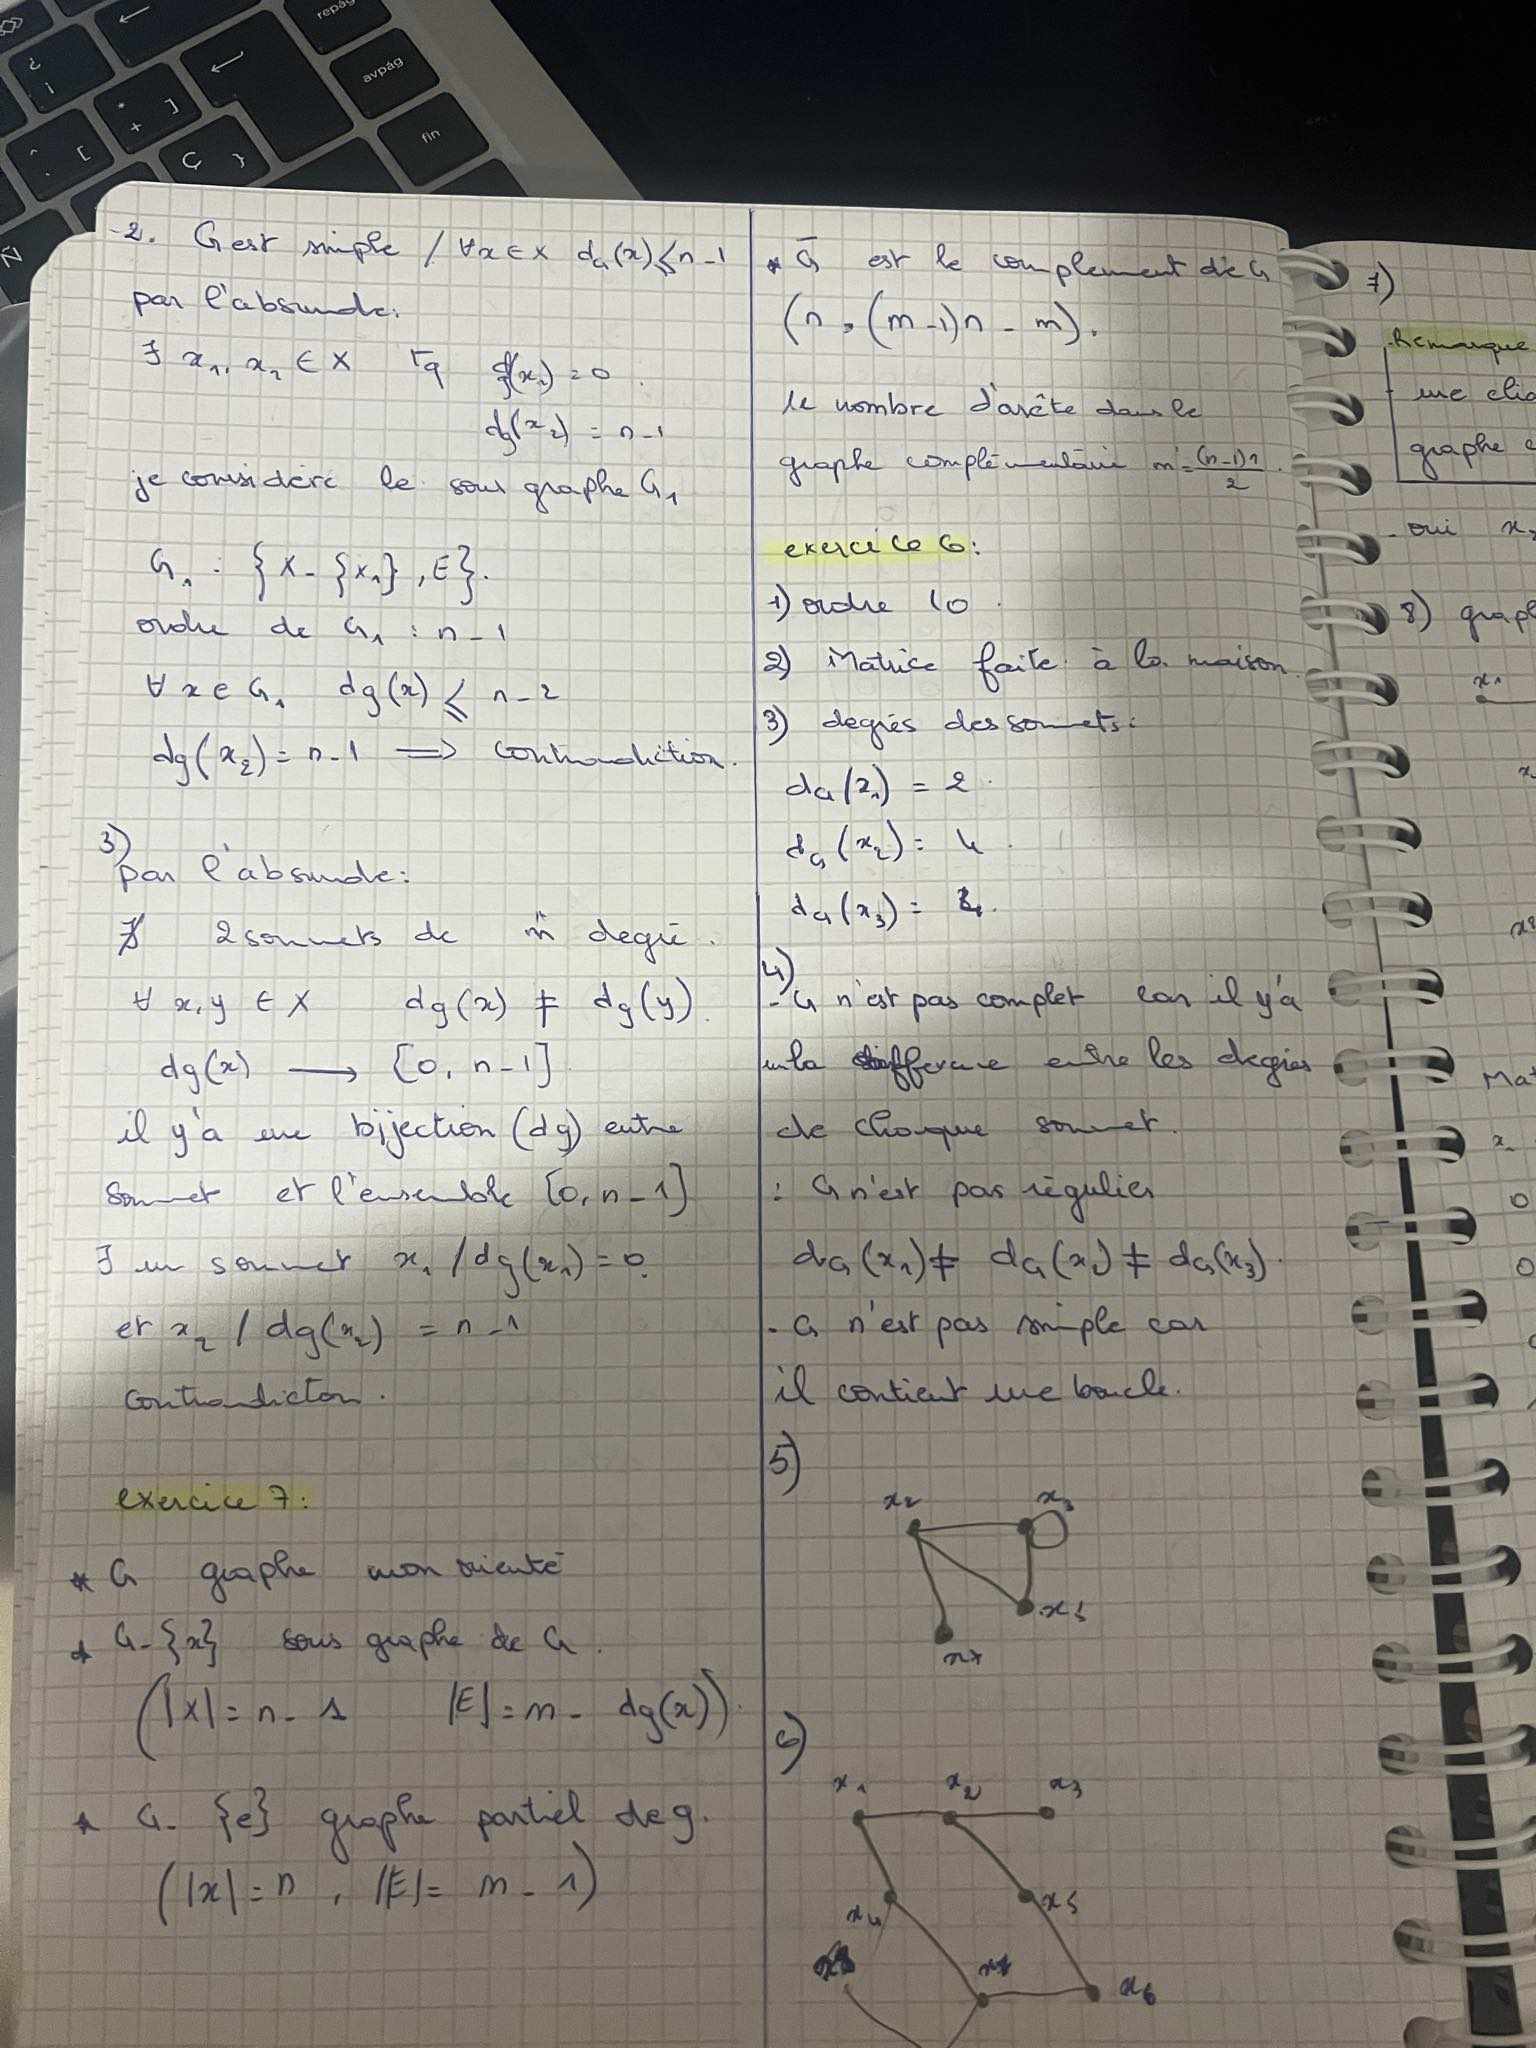 repág
avpág
fin
¿
¡
*
+
]
^
[
Ç
}
Ñ
-2. G est simple / ∀x∈X d_G(x)≤n-1
par l'absurde:
∃ x₁, x₂ ∈ X tq dg(x₁) = 0.
dg(x₂) = n-1
je considére le sous graphe G₁
G₁ : {X - {x₁}, E}.
ordre de G₁ : n-1
∀ x ∈ G₁ dg(x) ≤ n-2
dg(x₂) = n-1 => contradiction.
3)
par l'absurde:
∄ 2 sommets de m̈ degré.
∀ x,y ∈ X dg(x) ≠ dg(y).
dg(x) → [0, n-1]
il y'a une bijection (dg) entre
sommet et l'ensemble [0, n-1]
∃ un sommet x₁ / dg(x₁) = 0.
et x₂ / dg(x₂) = n-1
contradicton.
exercice 7:
* G graphe non orienté
* G-{x} sous graphe de G.
(|X| = n-1 |E| = m - dg(x)).
* G- {e} graphe partiel de g.
(|x| = n, |E| = m-1)
* Ḡ est le complement de G
(n, (m-1)n - m).
le nombre d'arête dans le
graphe complémentaire m' = (n-1)n/2.
exercice 6:
1) ordre 10.
2) Matrice faite à la maison.
3) degrés des sommets:
d_G(x₁) = 2.
d_G(x₂) = 4.
d_G(x₃) = 4.
4)
- G n'est pas complet car il y'a
la difference entre les degrés
de chaque sommet.
: G n'est pas régulier
d_G(x₁) ≠ d_G(x₂) ≠ d_G(x₃).
- G n'est pas simple car
il contient une boucle.
5)
x₂ x₃
x₅
x₇
6)
x₁ x₂ x₃
x₄ x₅
x₈ x₇ x₆
7)
Remarque
graphe
- oui
8) graph
x₁
Mat
0
0